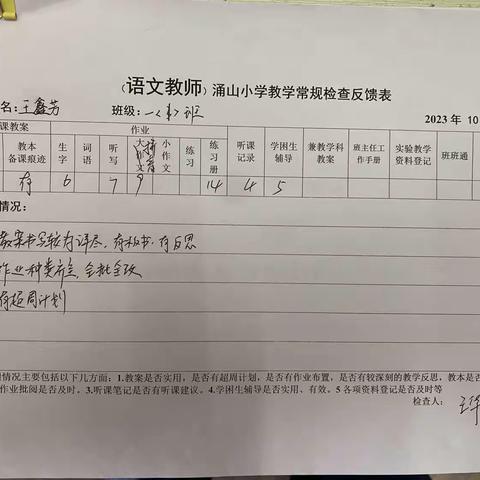 （语文教师）涌山小学教学常规检查反馈表
名：王鑫芳 班级：一<5>班 2023年10
课教案 作业 听课记录 学困生辅导 兼教学科教案 班主任工作手册 实验教学资料登记 班班通
教本备课痕迹 生字 词语 听写 大作文 拼音 小作文 练习 练习册
有 6 7 9 14 4 5
情况：
教案书写较为详尽，有板书，有反思
作业种类齐全，全批全改
有超周计划
情况主要包括以下几方面：1.教案是否实用，是否有超周计划，是否有作业布置，是否有较深刻的教学反思，教本是否
作业批阅是否及时。3.听课笔记是否有听课建议。4.学困生辅导是否实用、有效。5各项资料登记是否及时等
检查人：王华